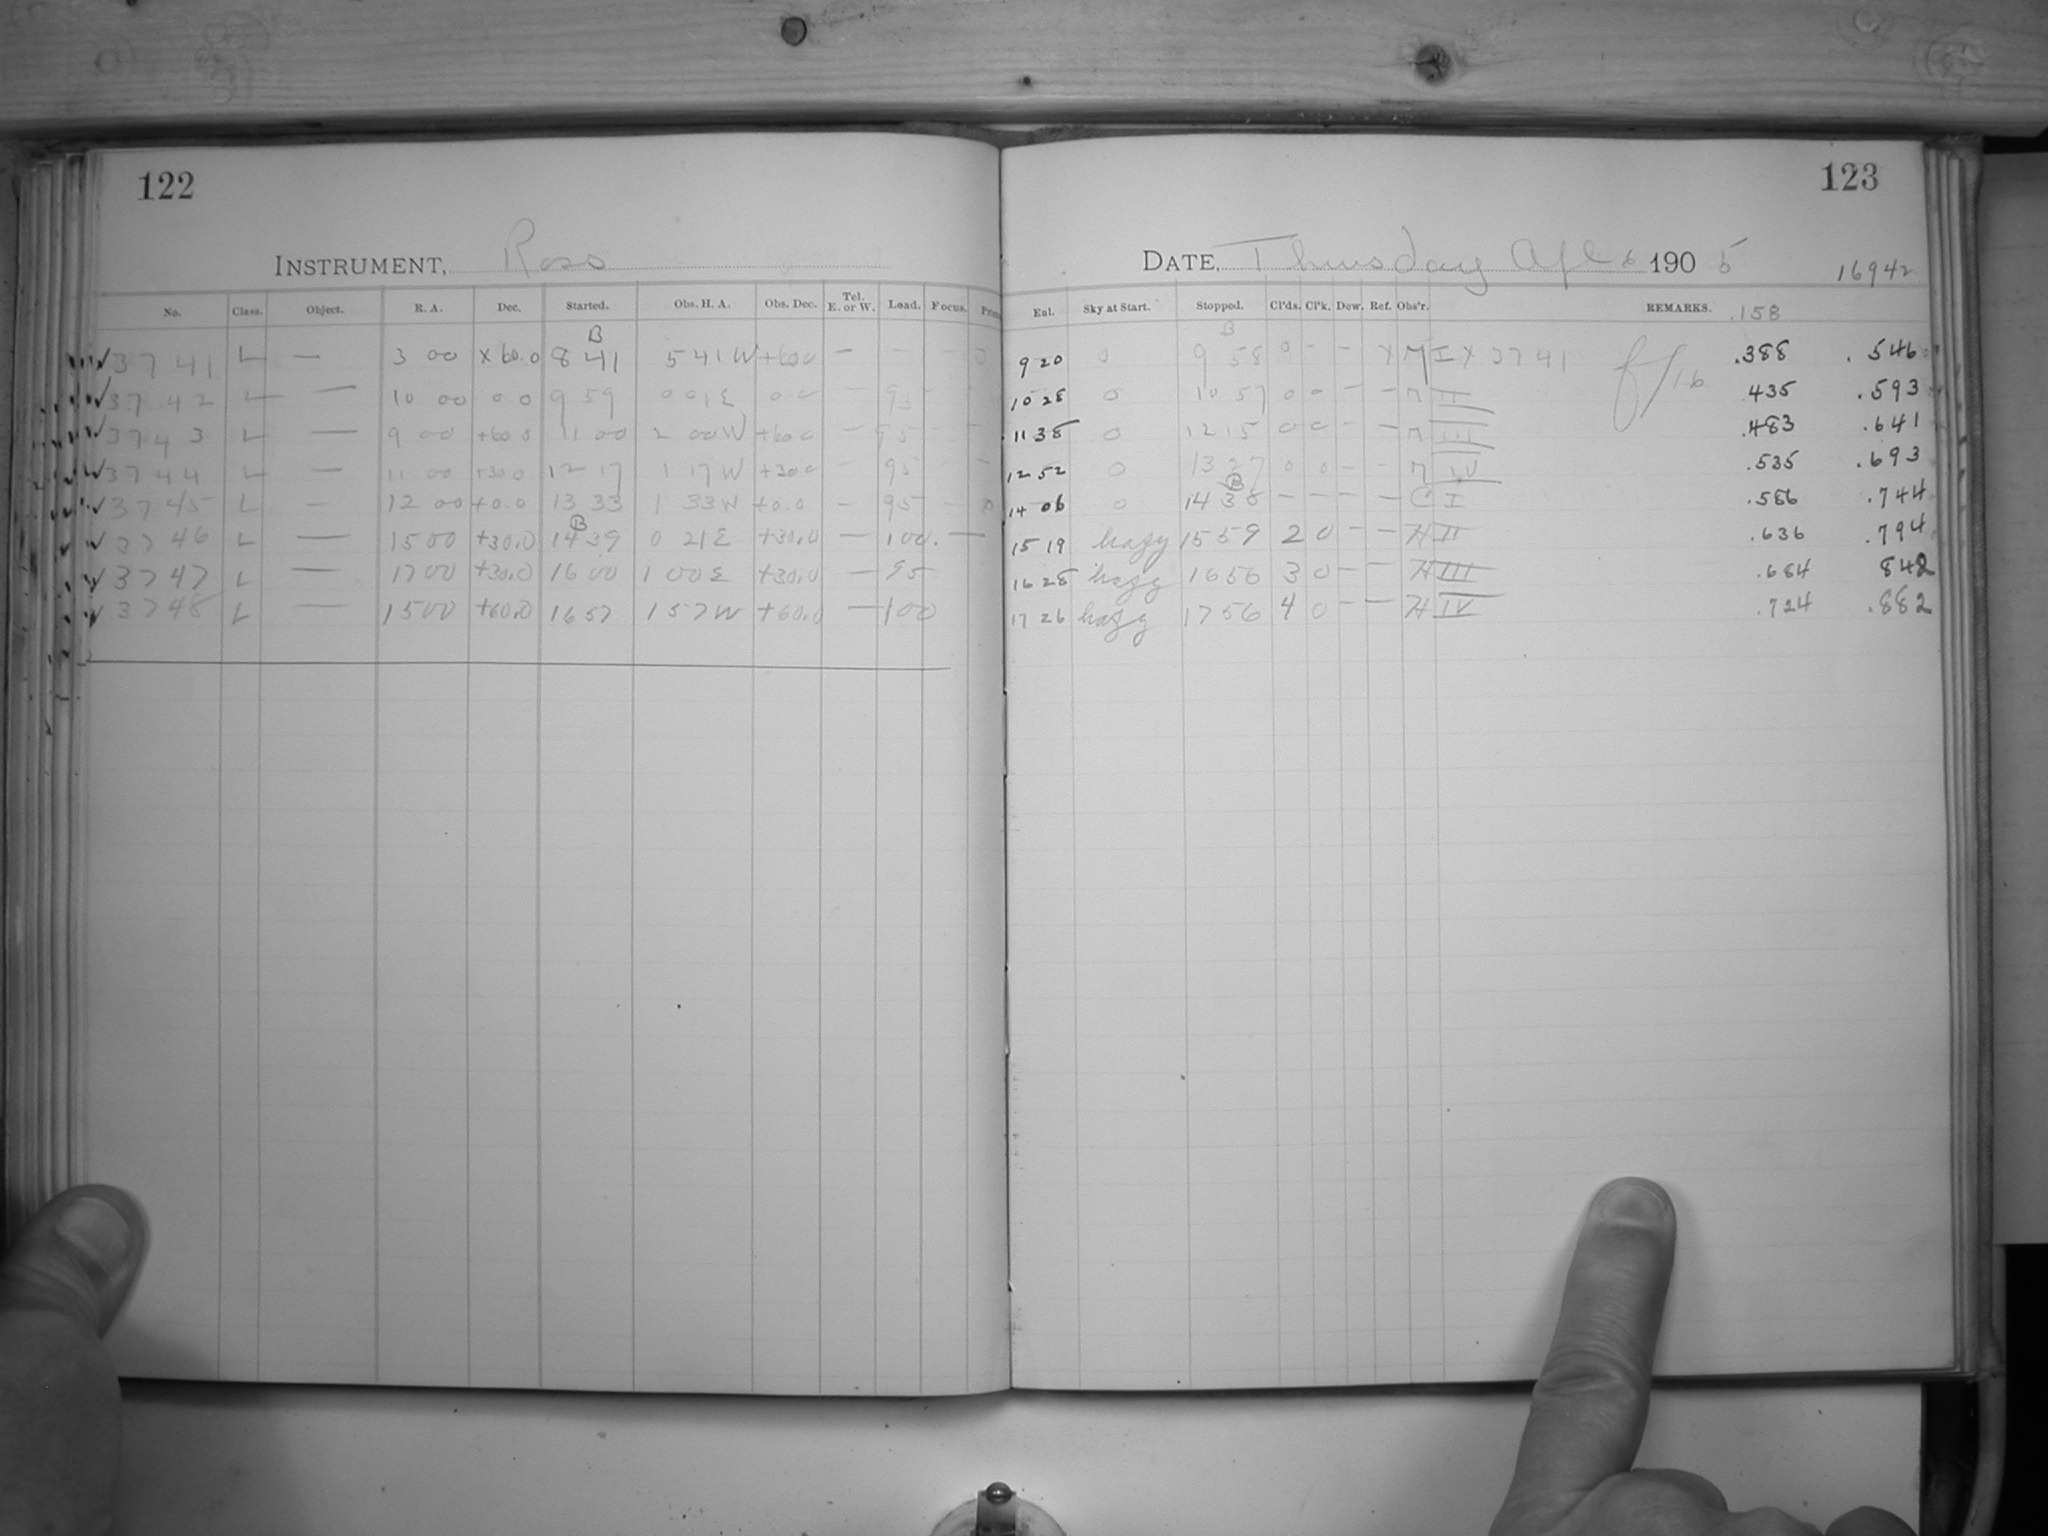 122
INSTRUMENT, Ross
No. Class. Object. R. A. Dec. Started. Obs. H. A. Obs. Dec. Tel. E. or W. Load. Focus.
B
3741 L — 3 00 × 60.0 8 41 5 41 W +60.0 — — —
3742 L — 10 00 0.0 9 59 0 01 E 0.0 — 95 —
3743 L — 9 00 +60.0 11 00 2 00 W +60.0 — 95 — —
3744 L — 11 00 +30.0 12 17 1 17 W +30.0 — 95 — —
3745 L — 12 00 +0.0 13 33 1 33 W +0.0 — 95 — 0
B
3746 L — 15 00 +30.0 14 39 0 21 E +30.0 — 100. —
3747 L — 17 00 +30.0 16 00 1 00 E +30.0 — 95
3748 L — 15 00 +60.0 16 57 1 57 W +60.0 — 100
123
DATE, Thursday Apl 6 1905
16942
Sky at Start. Stopped. Cl'ds. Cl'k. Dew. Ref. Obs'r. REMARKS. .158
B
9 20 0 9 58 0 — — × M I × 3741 f/16 .388 .546
10 28 0 10 57 0 0 — — M II .435 .593
11 38 0 12 15 0 0 — — M III .483 .641
12 52 0 13 27 0 0 — — M IV .535 .693
B
14 06 0 14 38 — — — — C I .586 .744
15 19 hazy 15 59 2 0 — — H II .636 .794
16 28 hazy 16 56 3 0 — — H III .684 842
17 26 hazy 17 56 4 0 — — H IV .724 .882